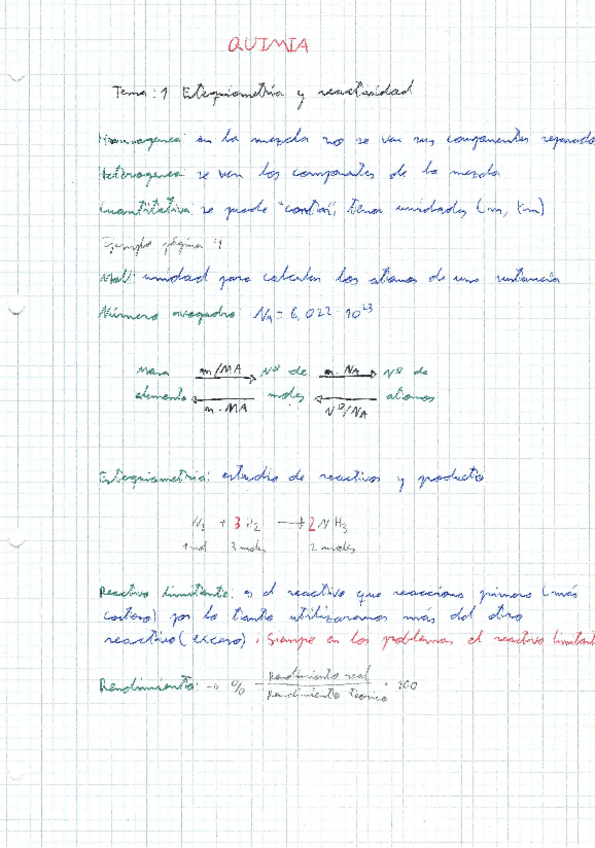 QUIMIA
Tema: 1 Etequiometría y reactividad
Homogenea: en la mezcla no se ven sus componentes separado
Heterogenea: se ven los componates de la mezcla
Cuantitativa: se puede "contar", tener unidades (m, km)
Ejemplo página 4
Mol: unidad para calcular los atomos de una sustancia
Número avogadro: NA = 6,022 · 10²³
Masa m/MA Nº de n·NA Nº de
elemento n·MA moles Nº/NA atomos
Estequiometria: estudio de reactivos y producto
N2 + 3H2 → 2NH3
1 mol 3 moles 2 moles
Reactivo limitante: es el reactivo que reacciona primero (más
costoso) por lo tanto utilizaremos más del otro
reactivo (exceso), Siempe en los problemas el reactivo limitant
Rendimiento: → % = Rendimiento real / Rendimiento Teorico · 100